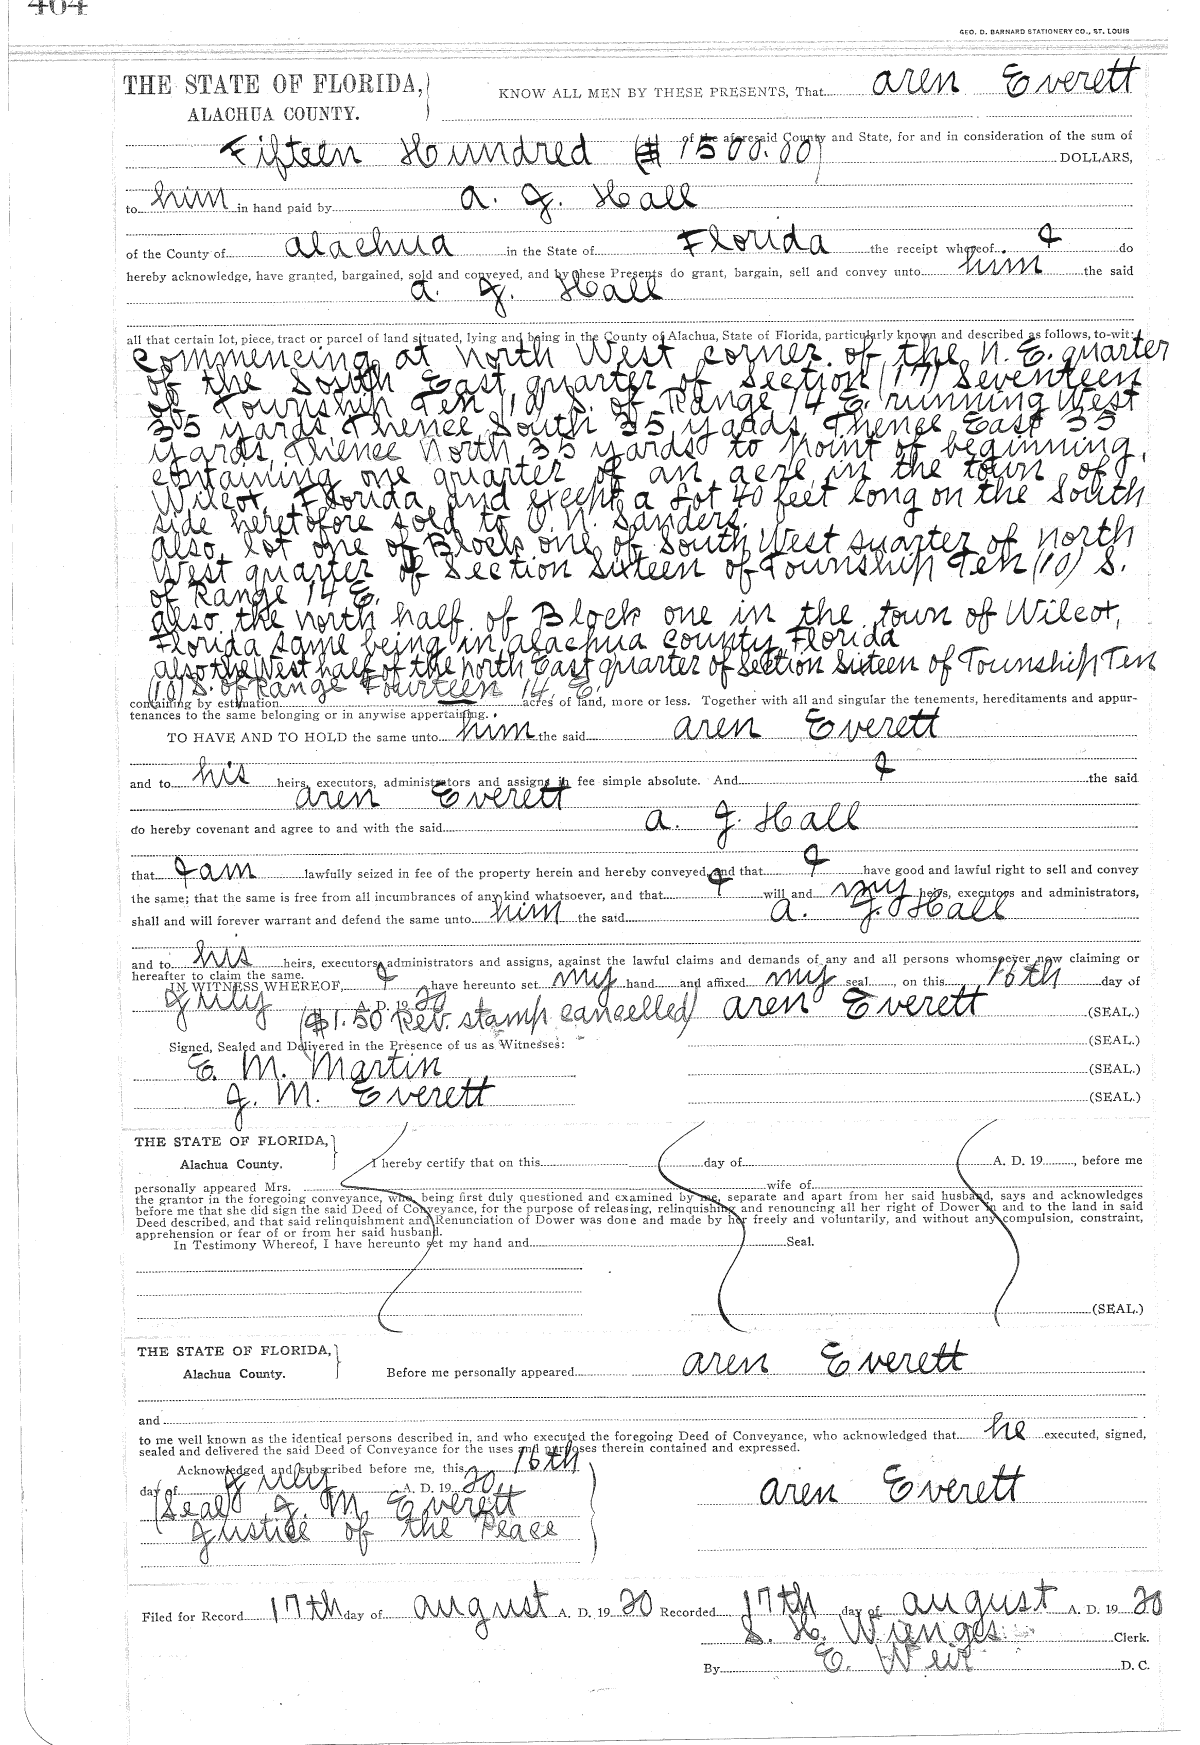 464
GEO. D. BARNARD STATIONERY CO., ST. LOUIS
THE STATE OF FLORIDA,
ALACHUA COUNTY.
KNOW ALL MEN BY THESE PRESENTS, That Aren Everett
of the aforesaid County and State, for and in consideration of the sum of
Fifteen Hundred ($1500.00) DOLLARS,
to him in hand paid by A. J. Hall
of the County of Alachua in the State of Florida the receipt whereof I do
hereby acknowledge, have granted, bargained, sold and conveyed, and by these Presents do grant, bargain, sell and convey unto him the said
A. J. Hall
all that certain lot, piece, tract or parcel of land situated, lying and being in the County of Alachua, State of Florida, particularly known and described as follows, to-wit:
Commencing at North West corner of the N. E. quarter
of the South East quarter of Section (17) Seventeen
of Township Ten (10) S. of Range 14 E. running West
35 yards, Thence South 35 yards, Thence East 35
yards, Thence North 35 yards to point of beginning,
containing one quarter of an acre in the town of
Wilcot, Florida and except a Lot 40 feet long on the South
side heretofore sold to O. N. Sanders.
also lot one of Block one of South West quarter of North
West quarter of Section Sixteen of Township Ten (10) S.
of Range 14 E.
also the north half of Block one in the town of Wilcot,
Florida same being in Alachua County, Florida
also the West half of the north East quarter of Section Sixteen of Township Ten
(10) S. of Range Fourteen 14, E.
containing by estimation acres of land, more or less. Together with all and singular the tenements, hereditaments and appur-
tenances to the same belonging or in anywise appertaining.
TO HAVE AND TO HOLD the same unto him the said Aren Everett
and to his heirs, executors, administrators and assigns in fee simple absolute. And I the said
Aren Everett
do hereby covenant and agree to and with the said A. J. Hall
that I am lawfully seized in fee of the property herein and hereby conveyed, and that I have good and lawful right to sell and convey
the same; that the same is free from all incumbrances of any kind whatsoever, and that I will and my heirs, executors and administrators,
shall and will forever warrant and defend the same unto him the said A. J. Hall
and to his heirs, executors, administrators and assigns, against the lawful claims and demands of any and all persons whomsoever now claiming or
hereafter to claim the same.
IN WITNESS WHEREOF, I have hereunto set my hand and affixed my seal, on this 16th day of
July A. D. 19 20 Aren Everett (SEAL.)
($1.50 Rev. stamp cancelled)
Signed, Sealed and Delivered in the Presence of us as Witnesses: (SEAL.)
E. M. Martin (SEAL.)
J. M. Everett (SEAL.)
THE STATE OF FLORIDA,
Alachua County.
I hereby certify that on this day of A. D. 19 , before me
personally appeared Mrs. wife of
the grantor in the foregoing conveyance, who, being first duly questioned and examined by me, separate and apart from her said husband, says and acknowledges
before me that she did sign the said Deed of Conveyance, for the purpose of releasing, relinquishing and renouncing all her right of Dower in and to the land in said
Deed described, and that said relinquishment and Renunciation of Dower was done and made by her freely and voluntarily, and without any compulsion, constraint,
apprehension or fear of or from her said husband.
In Testimony Whereof, I have hereunto set my hand and Seal.
(SEAL.)
THE STATE OF FLORIDA,
Alachua County.
Before me personally appeared Aren Everett
and
to me well known as the identical persons described in, and who executed the foregoing Deed of Conveyance, who acknowledged that he executed, signed,
sealed and delivered the said Deed of Conveyance for the uses and purposes therein contained and expressed.
Acknowledged and subscribed before me, this 16th
day of July A. D. 19 20.
(Seal) J. M. Everett
Justice of the Peace
Aren Everett
Filed for Record 17th day of August A. D. 19 20 Recorded 17th day of August A. D. 19 20
S. H. Wienges Clerk.
By E. Weir D. C.